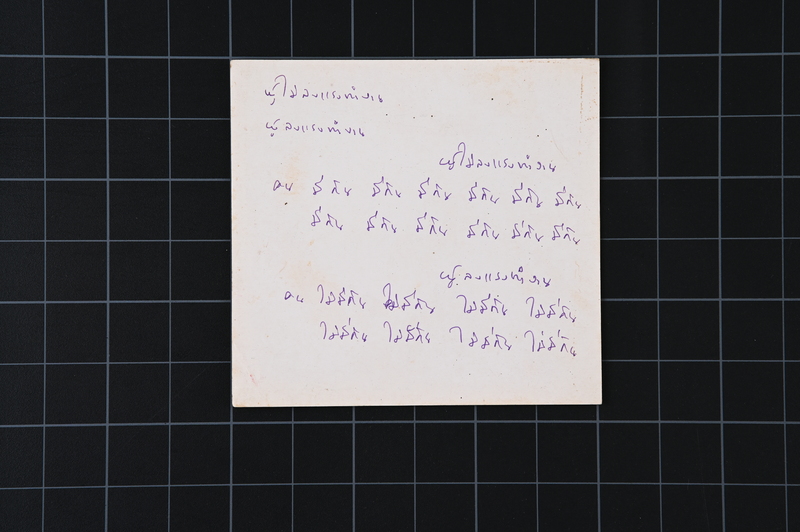 ผู้ไม่ลงแรงทำงาน
ผู้ลงแรงทำงาน
ผู้ไม่ลงแรงทำงาน
คน มีกิน มีกิน มีกิน มีกิน มีกิน มีกิน
มีกิน มีกิน มีกิน มีกิน มีกิน มีกิน
ผู้ลงแรงทำงาน
คน ไม่มีกิน ไม่มีกิน ไม่มีกิน ไม่มีกิน
ไม่มีกิน ไม่มีกิน ไม่มีกิน ไม่มีกิน